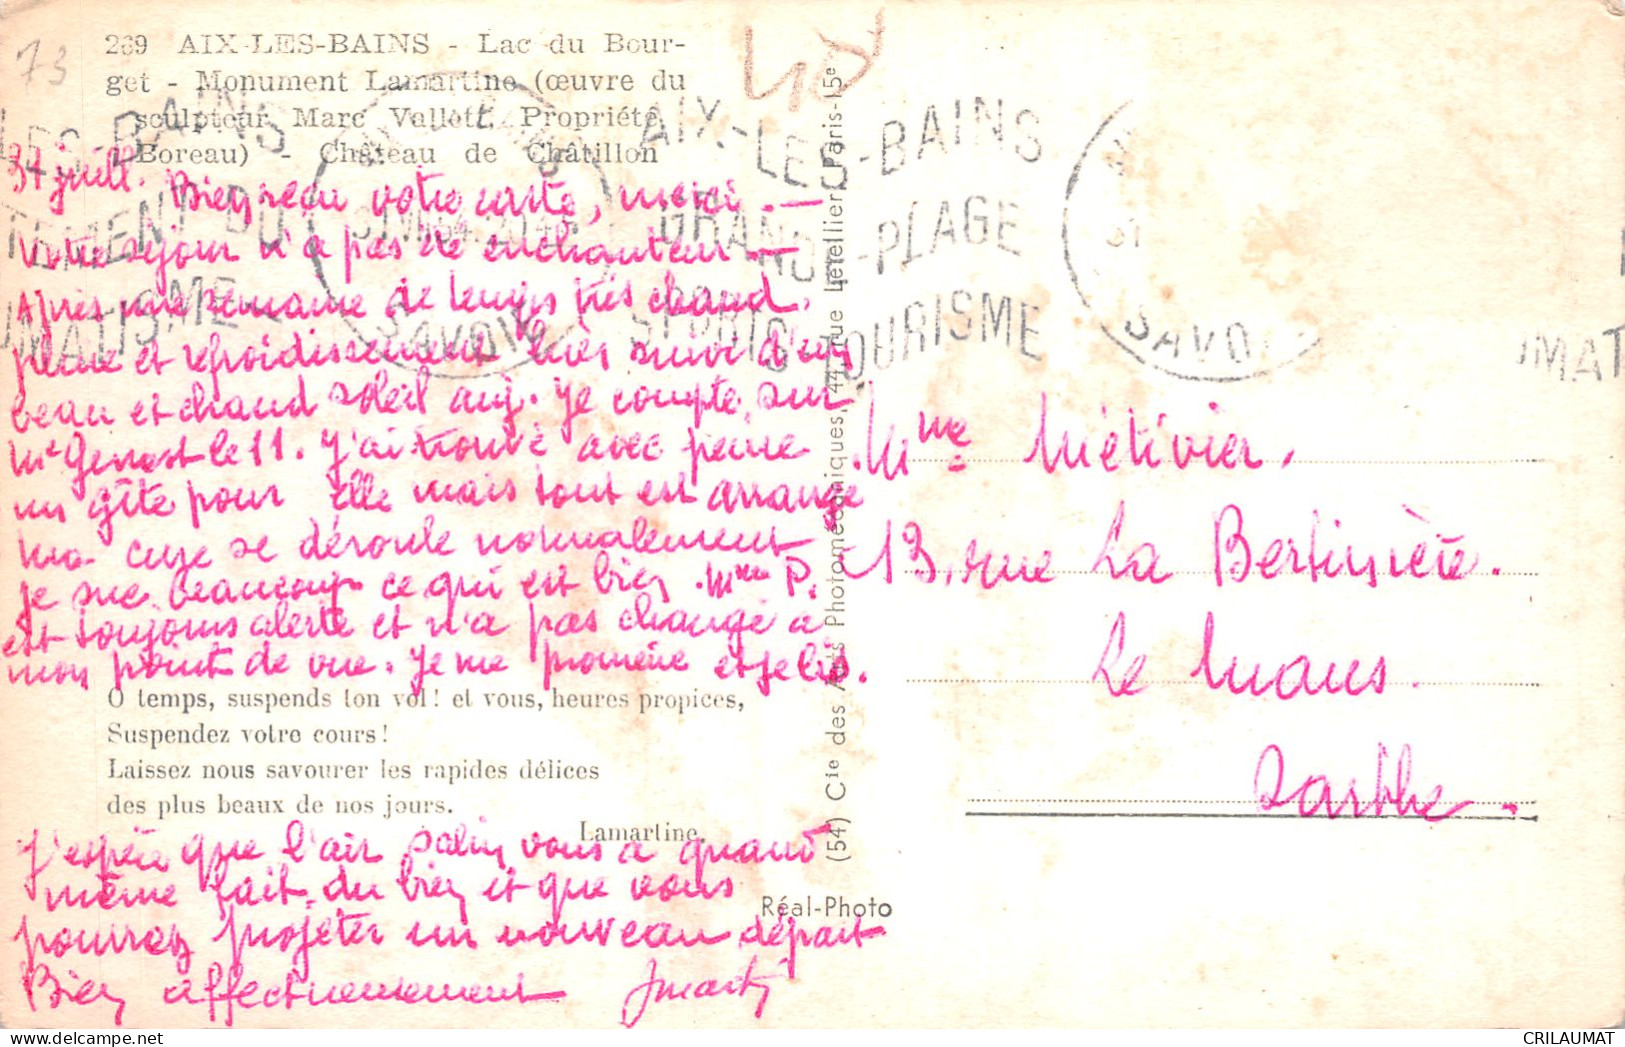 73
269 AIX-LES-BAINS - Lac du Bour-
get - Monument Lamartine (œuvre du
sculpteur Marc Vallett, Propriété
Boreau) - Château de Châtillon
31 juill. Bien reçu votre carte, merci. —
Votre séjour n'a pas été enchanteur —
Après une semaine de temps très chaud,
pluie et refroidissement suivi d'un
beau et chaud soleil auj. Je compte sur
Me Genest le 11. J'ai trouvé avec peine
un gîte pour Elle mais tout est arrangé
ma cure se déroule normalement
je sue beaucoup ce qui est bien. Mme P.
est toujours alerte et n'a pas changé à
mon point de vue. Je me promène et je lis.
O temps, suspends ton vol! et vous, heures propices,
Suspendez votre cours!
Laissez nous savourer les rapides délices
des plus beaux de nos jours.
Lamartine
J'espère que l'air salin vous a quand
même fait du bien et que vous
pourrez projeter un nouveau départ
Bien affectueusement
Réal-Photo
(54) Cie des Arts Photomécaniques, 44, rue Letellier, Paris-15e
LES-BAINS
TEMENT DU
UMATISME
SAVOIE
AIX-LES-BAINS
GRANDE-PLAGE
SPORTS TOURISME
31
SAVO
UMAT
Mme Métivier,
13, rue La Bertinière.
Le Mans.
Sarthe.
CRILAUMAT